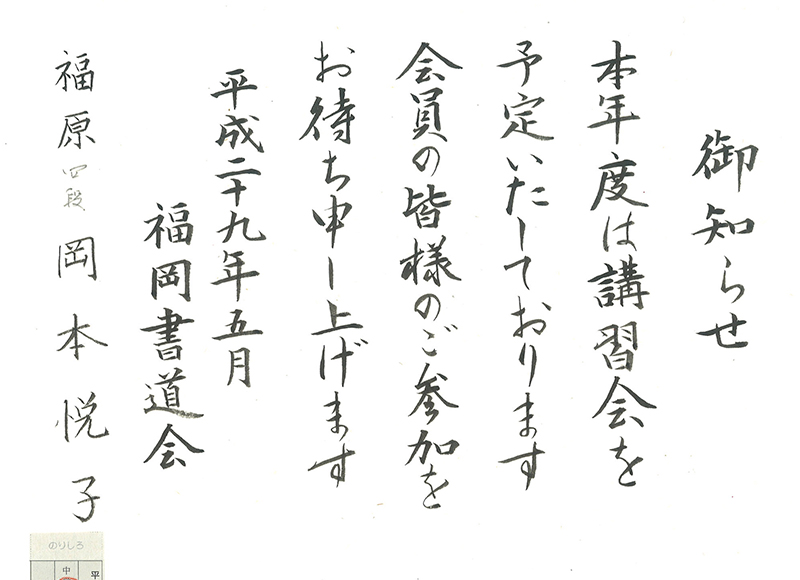 御知らせ
本年度は講習会を
予定いたしております
会員の皆様のご参加を
お待ち申し上げます
平成二十九年五月
福岡書道会
福原 四段 岡本悦子
のりしろ
中
平